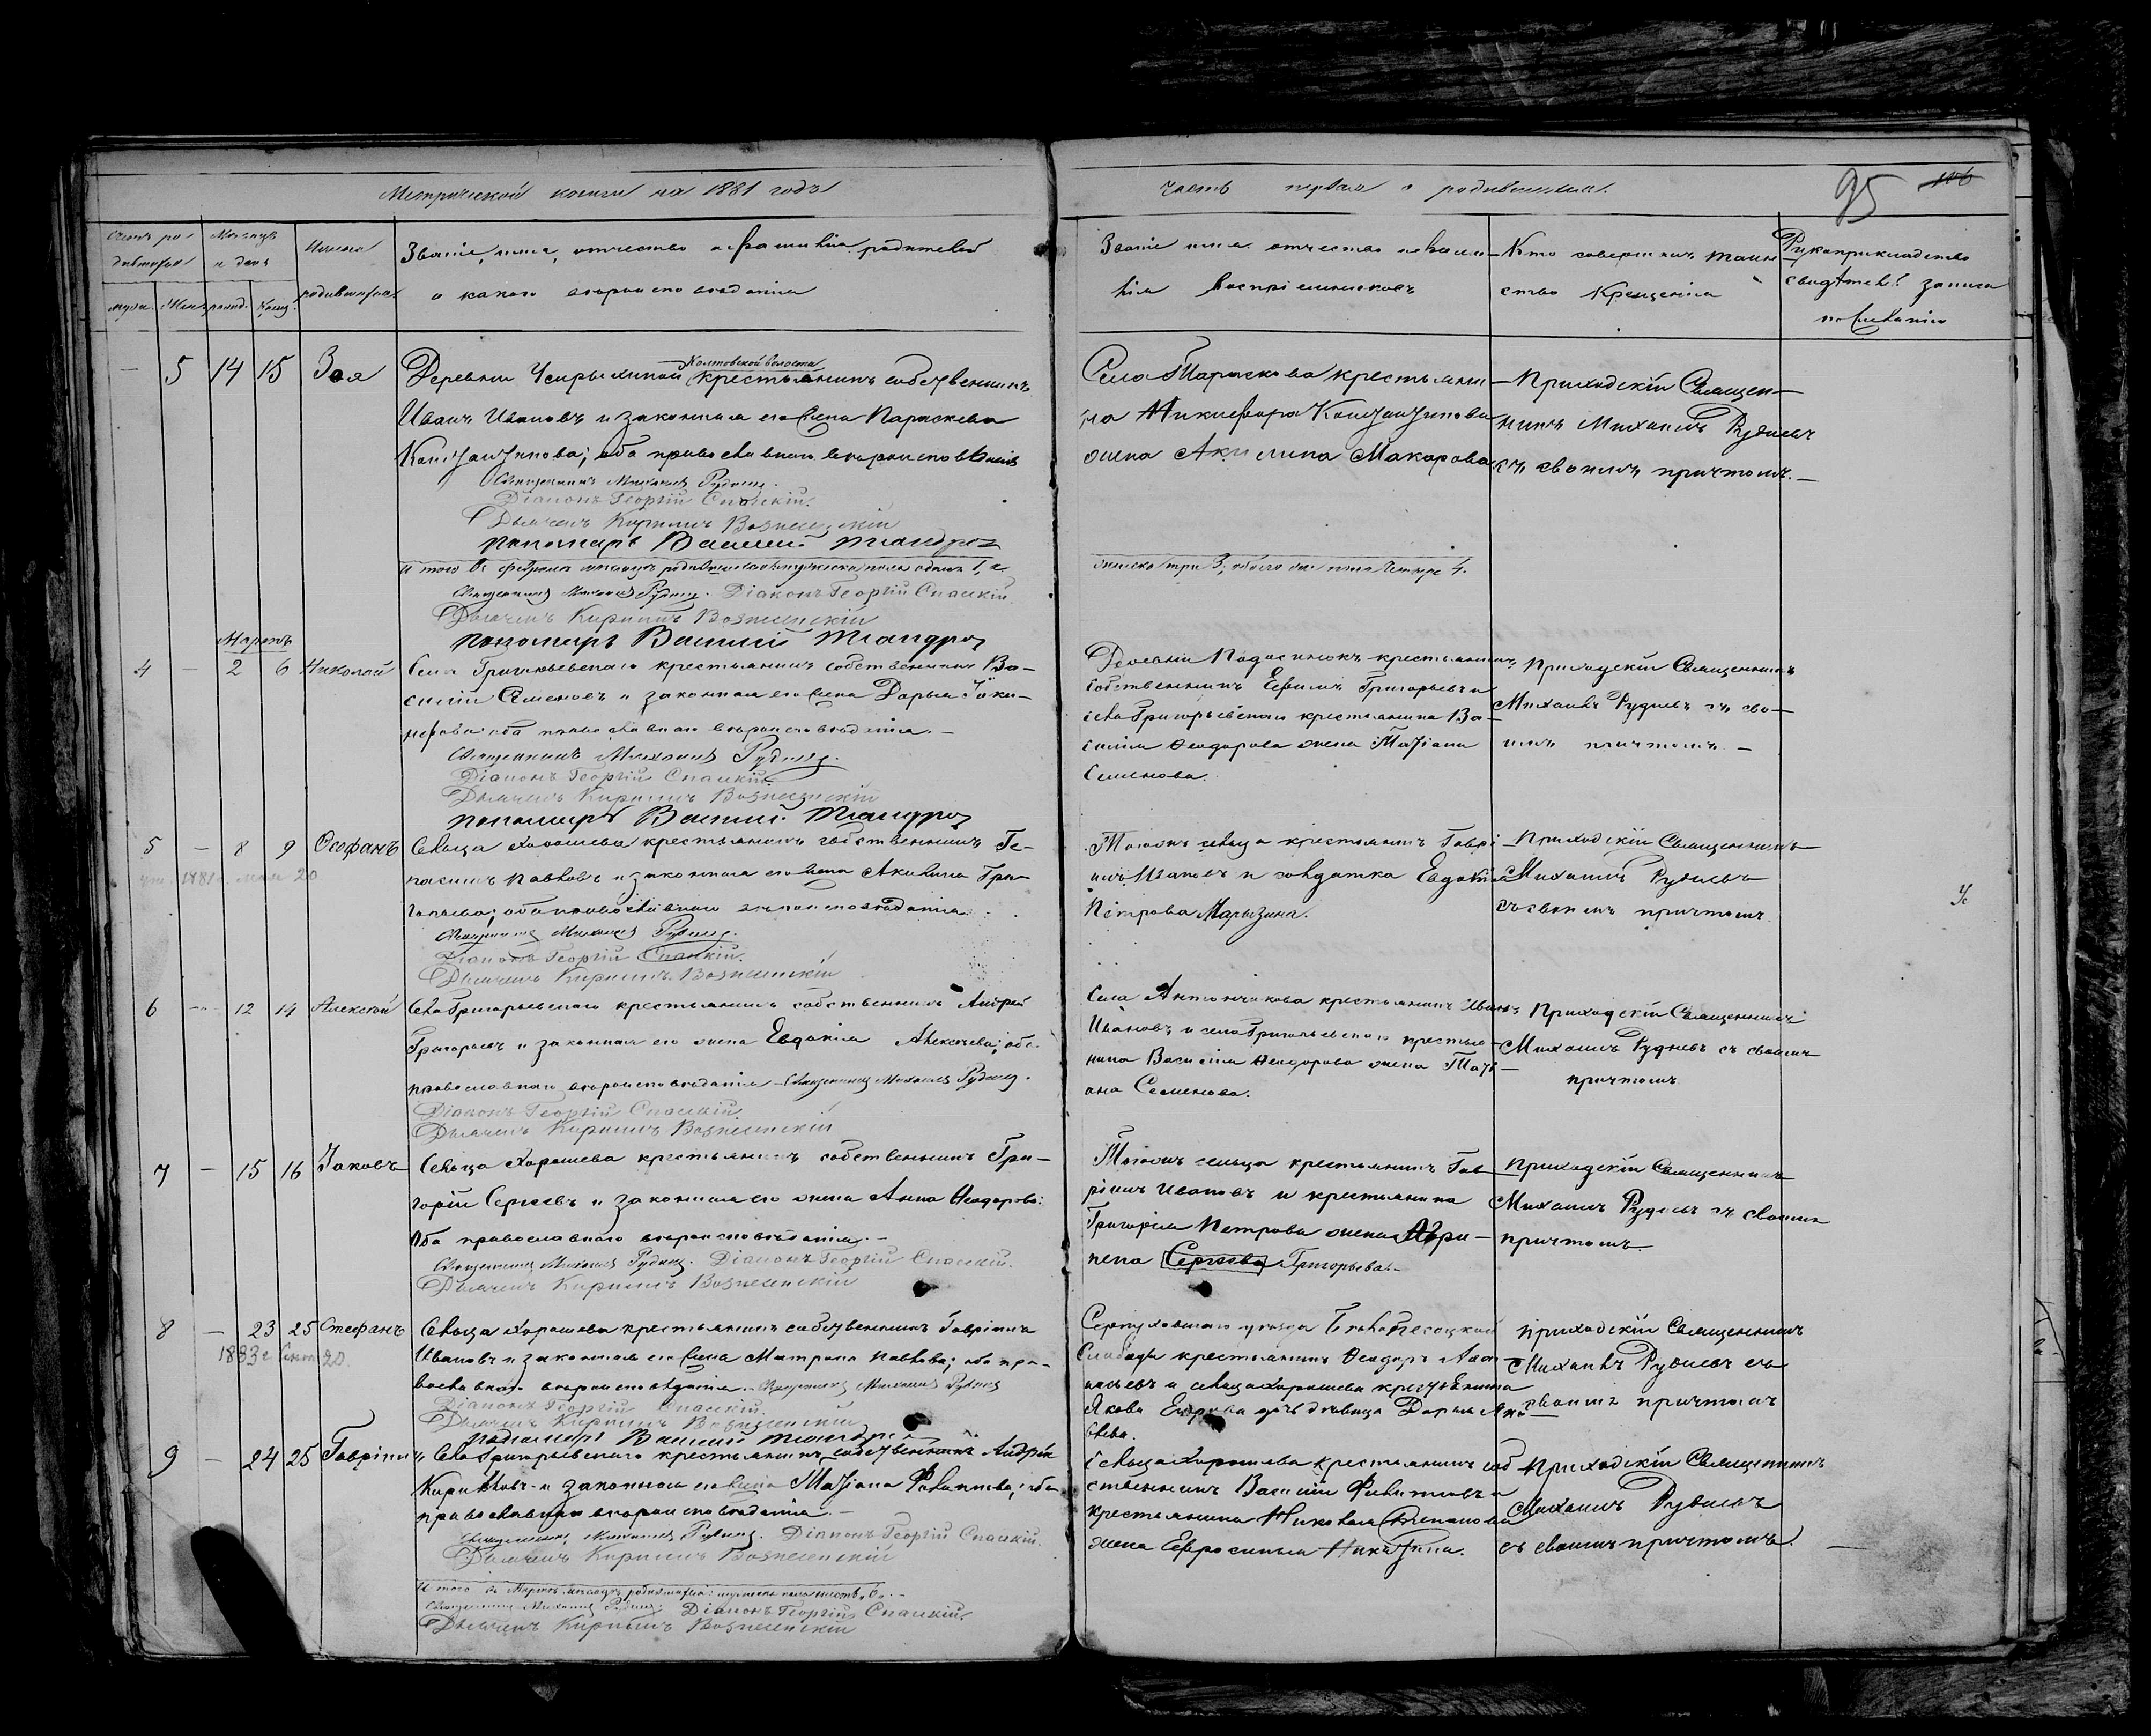 Метрической книги на 1881 годъ
часть первая о родившихся.
95
106
Счетъ ро-
дившихся
Мѣсяцъ
и день
Имена
родившихся
Званіе, имя, отчество и фамилія родителей
и какого вѣроисповѣданія
муж. Жен. рожд. Крещ.
Званіе имя отчество и фами-
лія воспріемниковъ
Кто совершилъ таин-
ство Крещенія
Рукоприкладство
свидѣтелей записи
по желанію
— 5 14 15 Зоя
Деревни Колтовской волости крестьянинъ собственникъ
Иванъ Ивановъ и законная его жена Параскева
Константинова; оба православнаго вѣроисповѣданія
Священникъ Михаилъ Рудневъ.
Діаконъ Георгій Спасскій.
Дьячекъ Кириллъ Вознесенскій
Пономарь Василій
Села Тараскова крестьяни-
на Никифора Константинова
жена Акилина Макарова
Приходскій Священ-
никъ Михаилъ Рудневъ
съ своимъ причтомъ.—
Итого въ февралѣ мѣсяцѣ родившихся мужеска пола одинъ 1, а
женска три 3, обоего же пола четыре 4.
Священникъ Михаилъ Рудневъ. Діаконъ Георгій Спасскій.
Дьячекъ Кириллъ Вознесенскій
Пономарь Василій
Мартъ
4 — 2 6 Николай
Села Григорьевскаго крестьянинъ собственникъ Ва-
силій Семеновъ и законная его жена Дарья Іоки-
оба православнаго вѣроисповѣданія.—
Священникъ Михаилъ Рудневъ.
Діаконъ Георгій Спасскій
Дьячекъ Кириллъ Вознесенскій
Пономарь Василій
Деревни Подосинокъ крестьянинъ
собственникъ Ефимъ Григорьевъ и
села Григорьевскаго крестьянина Ва-
силія Ѳеодорова жена Татіана
Семенова.
Приходскій Священникъ
Михаилъ Рудневъ съ сво-
имъ причтомъ.—
5 — 8 9 Ѳеофанъ
ум. 1881 г. мая 20
Сельца Хорошева крестьянинъ собственникъ Ге-
расимъ Павловъ и законная его жена Акилина Гри-
горьева; оба православнаго вѣроисповѣданія.
Священникъ Михаилъ Рудневъ.
Діаконъ Георгій Спасскій.
Дьячекъ Кириллъ Вознесенскій
Тогожъ сельца крестьянинъ Гаврі-
илъ Ивановъ и солдатка Евдокія
Петрова Марызина.
Приходскій Священникъ
Михаилъ Рудневъ
съ своимъ причтомъ
6 — 12 14 Алексѣй
Села Григорьевскаго крестьянинъ собственникъ Андрей
Григорьевъ и законная его жена Евдокія Алексѣева; оба
православнаго вѣроисповѣданія.—Священникъ Михаилъ Рудневъ.
Діаконъ Георгій Спасскій.
Дьячекъ Кириллъ Вознесенскій
Села крестьянинъ Иванъ
Ивановъ и села Григорьевскаго крестья-
нина Василія Ѳеодорова жена Таті-
ана Семенова.
Приходскій Священникъ
Михаилъ Рудневъ съ своимъ
причтомъ
7 — 15 16 Іаковъ
Сельца Хорошева крестьянинъ собственникъ Гри-
горій Сергѣевъ и законная его жена Анна Ѳеодорова:
Оба православнаго вѣроисповѣданія.—
Священникъ Михаилъ Рудневъ. Діаконъ Георгій Спасскій.
Дьячекъ Кириллъ Вознесенскій
Тогожъ сельца крестьянинъ Гав-
ріилъ Ивановъ и крестьянина
Григорія Петрова жена Агри-
пена Сергѣева Григорьева.—
Приходскій Священникъ
Михаилъ Рудневъ съ своимъ
причтомъ.
8 — 23 25 Стефанъ
1883 г. Сент. 20.
Сельца Хорошева крестьянинъ собственникъ Гавріилъ
Ивановъ и законная его жена Матрона Павлова; оба пра-
вославнаго вѣроисповѣданія.—Священникъ Михаилъ Рудневъ
Діаконъ Георгій Спасскій.
Дьячекъ Кириллъ Вознесенскій
Пономарь Василій
Серпуховскаго уѣзда Бѣлопесоцкой
Слободы крестьянинъ Ѳеодоръ
и сельца Хорошева крестьянина
Якова дочь дѣвица Дарья Яко-
влева.
Приходскій Священникъ
Михаилъ Рудневъ съ
своимъ причтомъ
9 — 24 25 Гавріилъ
Села Григорьевскаго крестьянинъ собственникъ Андрей
Кирилловъ и законная его жена Татіана Филиппова; оба
православнаго вѣроисповѣданія.—
Священникъ Михаилъ Рудневъ. Діаконъ Георгій Спасскій.
Дьячекъ Кириллъ Вознесенскій
Сельца Хорошева крестьянинъ соб-
ственникъ Василій Филипповъ и
крестьянина Николая Степанова
жена Евфросинья Никитина.
Приходскій Священникъ
Михаилъ Рудневъ
съ своимъ причтомъ.
Итого въ Мартѣ мѣсяцѣ родившихся: мужеска пола шесть, 6.—
Священникъ Михаилъ Рудневъ. Діаконъ Георгій Спасскій.
Дьячекъ Кириллъ Вознесенскій